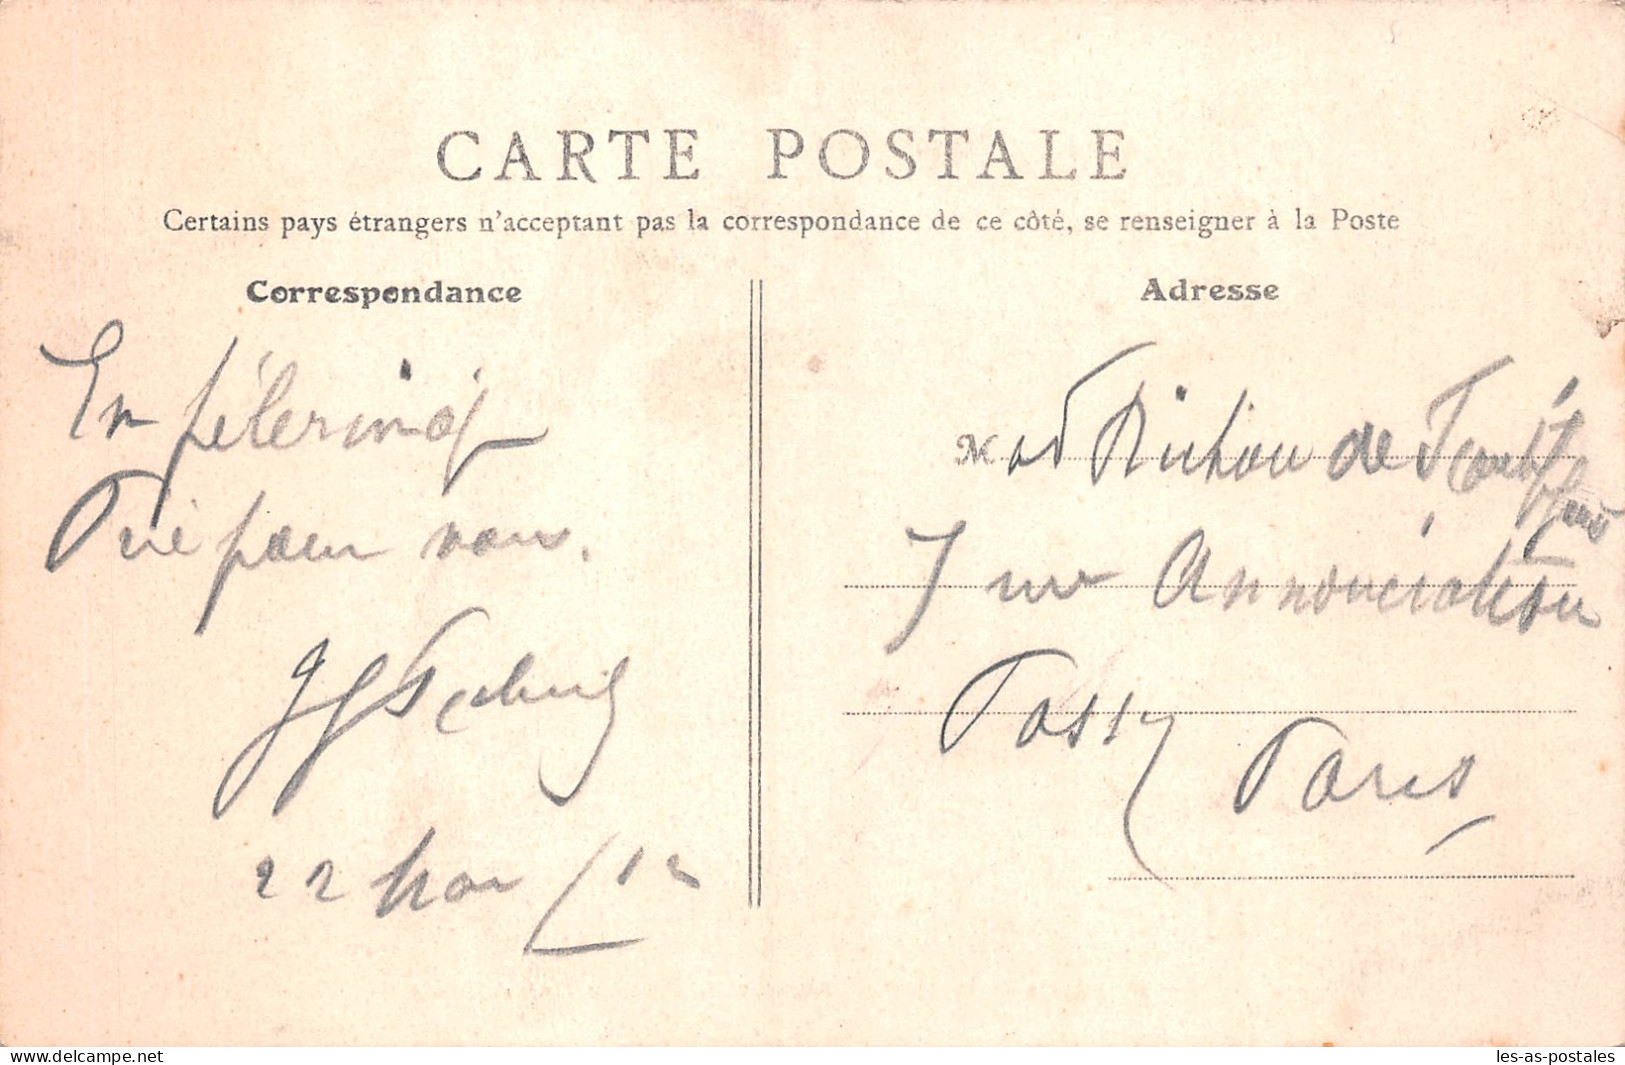 CARTE POSTALE
Certains pays étrangers n'acceptant pas la correspondance de ce côté, se renseigner à la Poste
Correspondance
Adresse
En pélerinag
Prié pour vous.
22 Nov / 12
Mad Richou de
7 rue Annonciation
Passy
Paris
www.delcampe.net
les-as-postales